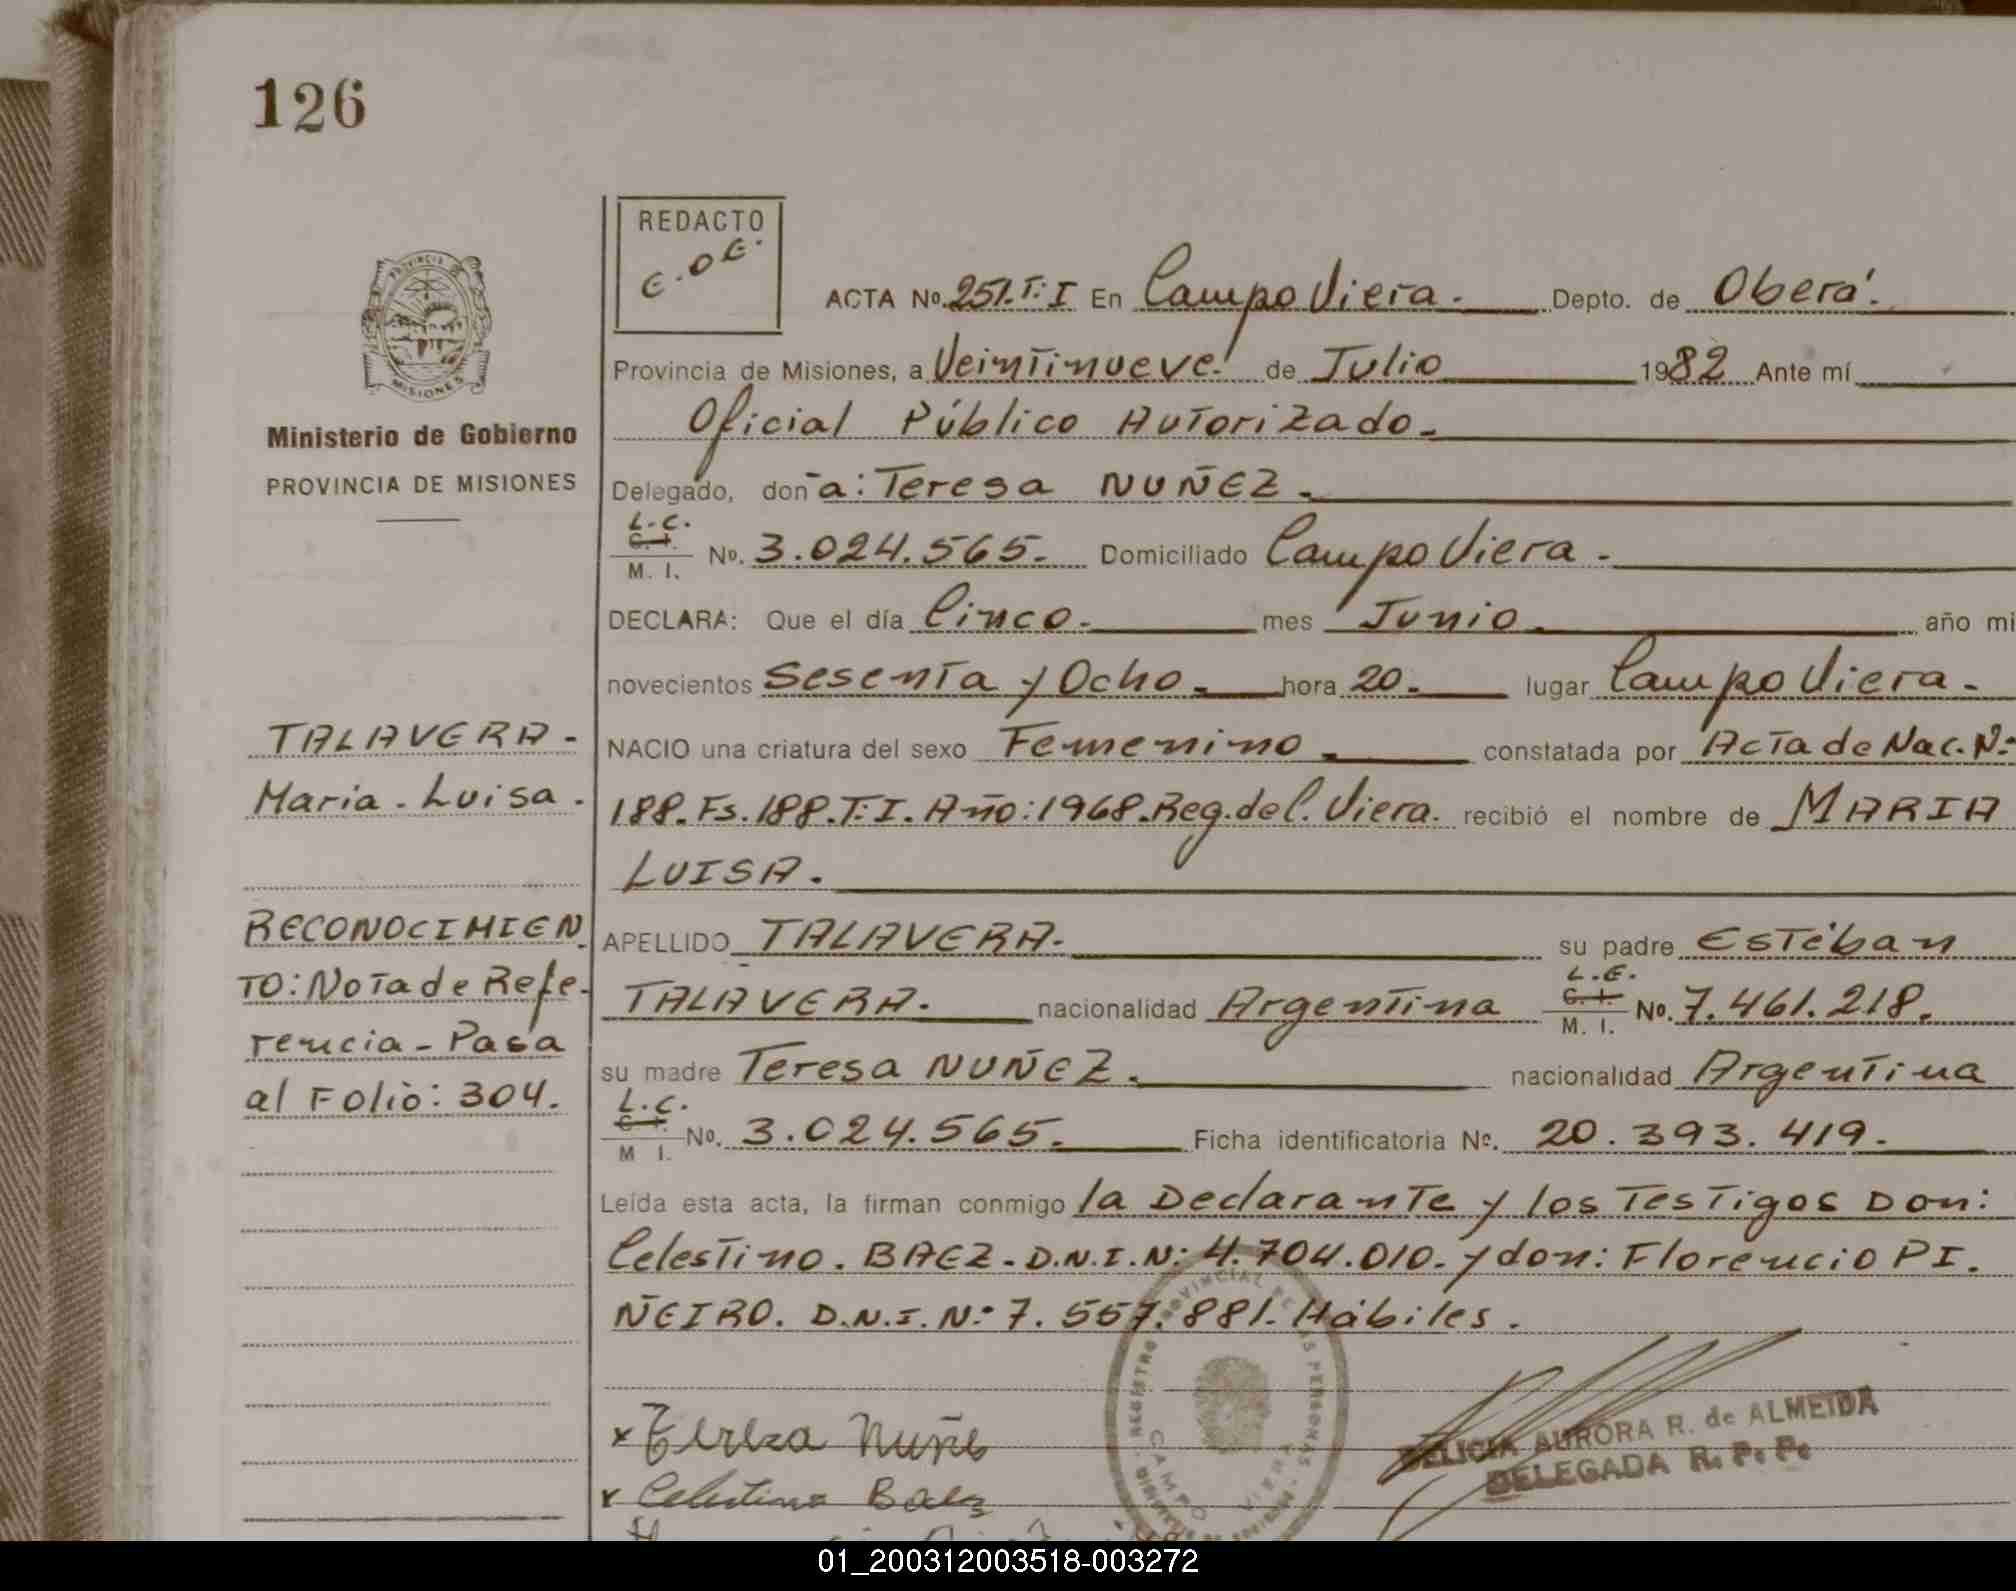 126
REDACTO
E.O.E.
ACTA No. 251.T:I En Campo Viera. Depto. de Oberá.
Provincia de Misiones, a Veintinueve de Julio 1982 Ante mí
Oficial Público Autorizado.
Delegado, doña: Teresa NUÑEZ.
L.C.
C. I.
M. I.
No. 3.024.565. Domiciliado Campo Viera.
DECLARA: Que el día Cinco. mes Junio. año mi
novecientos Sesenta y Ocho. hora 20. lugar Campo Viera.
NACIO una criatura del sexo Femenino. constatada por Acta de Nac. Nº
188. Fs. 188. T:I. Año: 1968. Reg. de C. Viera. recibió el nombre de MARIA
LUISA.
APELLIDO TALAVERA. su padre Estéban
TALAVERA. nacionalidad Argentina
L.E.
C. I.
M. I.
No. 7.461.218.
su madre Teresa NUÑEZ. nacionalidad Argentina
L.C.
C. I.
M I.
No. 3.024.565. Ficha identificatoria Nº. 20.393.419.
Leída esta acta, la firman conmigo la Declarante y los Testigos Don:
Celestino. BAEZ. D.N.I. N: 4.704.010. y don: Florencio PI.
ÑEIRO. D.N.I. Nº 7.557.881. Hábiles.
PROVINCIA DE
MISIONES
Ministerio de Gobierno
PROVINCIA DE MISIONES
TALAVERA -
Maria - Luisa.
RECONOCIMIEN
TO: Nota de Refe-
rencia - Pasa
al Folio: 304.
x Tereza Nuñe
x Celestino Baez
REGISTRO PROVINCIAL DE LAS PERSONAS
CAMPO VIERA
FELICIA AURORA R. de ALMEIDA
DELEGADA R. P. P.
01_200312003518-003272